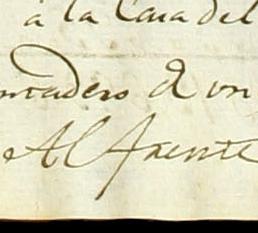 à la Cara del
ntadero d un
Al frente